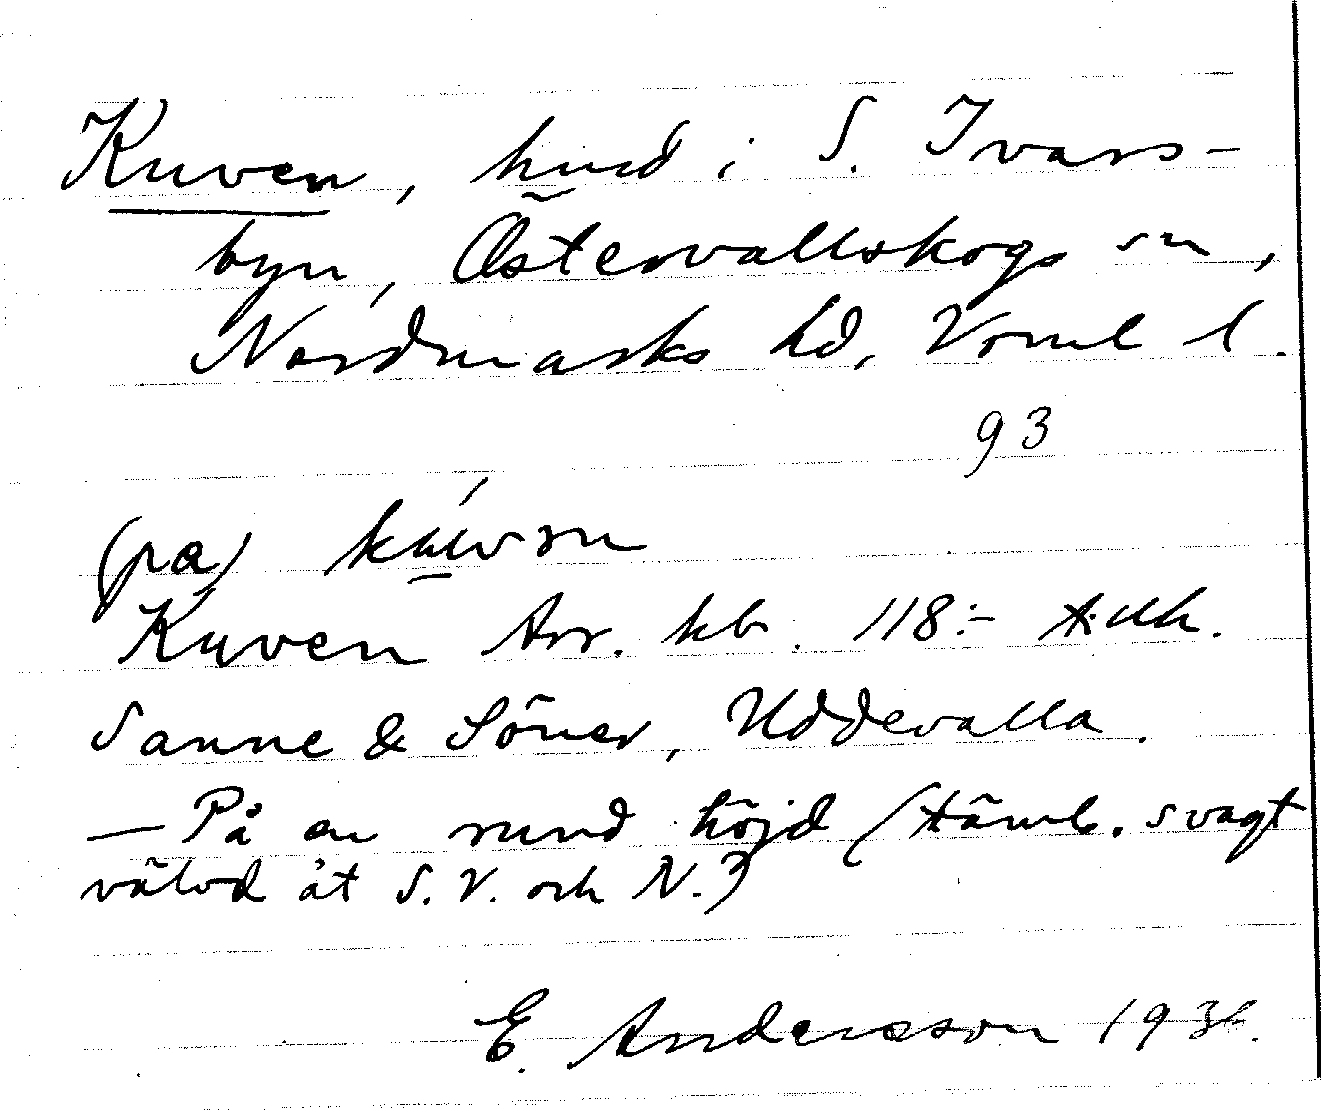 Kuven, hmd i S. Ivars-
byn, Östervallskogs sn,
Nordmarks hd, Vrml l.
93
(pa)
Kuven Arr. kb. 118:- A.
Sanne & Söner, Uddevalla.
— På en rund höjd (Hämb. svagt
välvd åt S. V. och N.)
E. Andersson 193